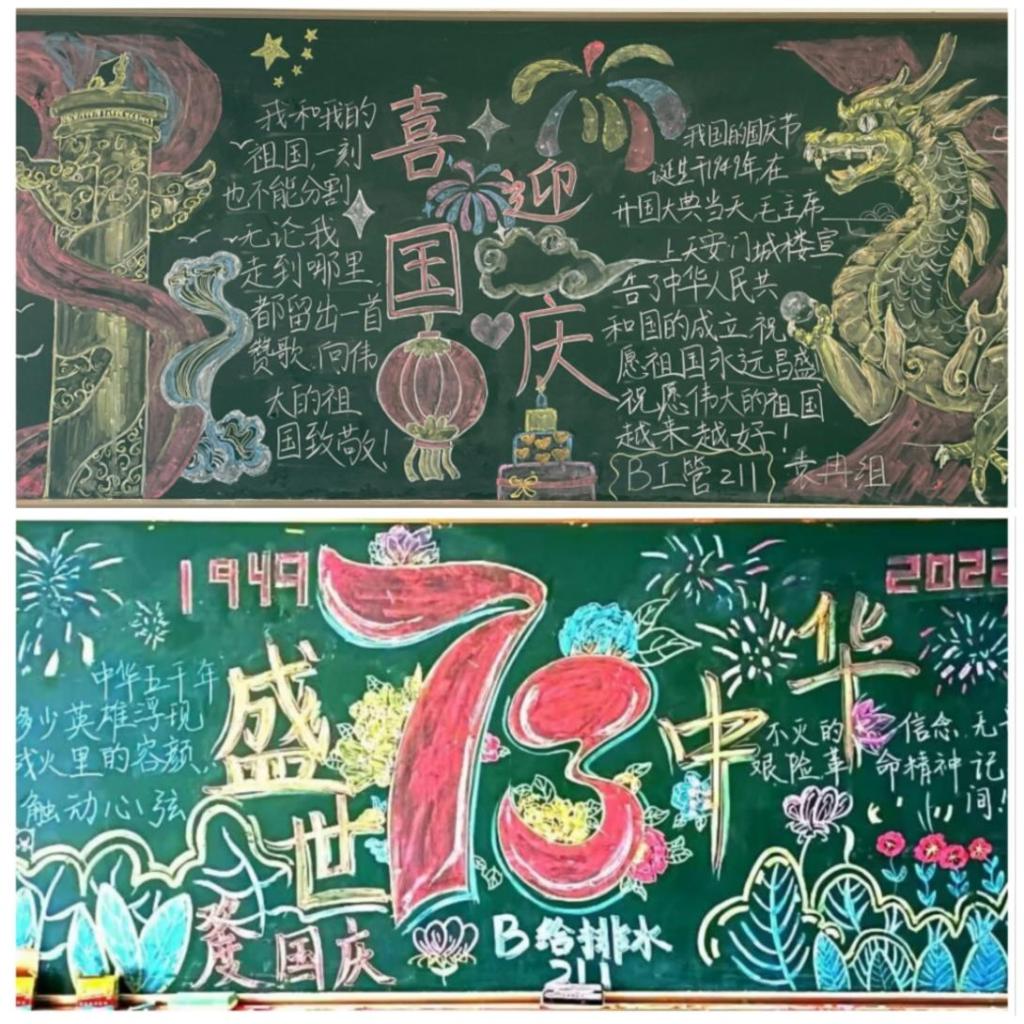 我和我的
祖国,一刻
也不能分割
无论我
走到哪里
都留出一首
赞歌.向伟
大的祖
国致敬!
喜
迎
国
庆
我国的国庆节
诞生于1949年,在
开国大典当天,毛主席
上天安门城楼宣
告了中华人民共
和国的成立.祝
愿祖国永远昌盛
祝愿伟大的祖国
越来越好!
B工管211
袁冉组
1949
73
2022
盛
世
中
华
中华五千年
多少英雄浮现
战火里的容颜,
触动心弦
不灭的 信念 无
艰险革 命精神 记
间!
国庆
B给排水
211